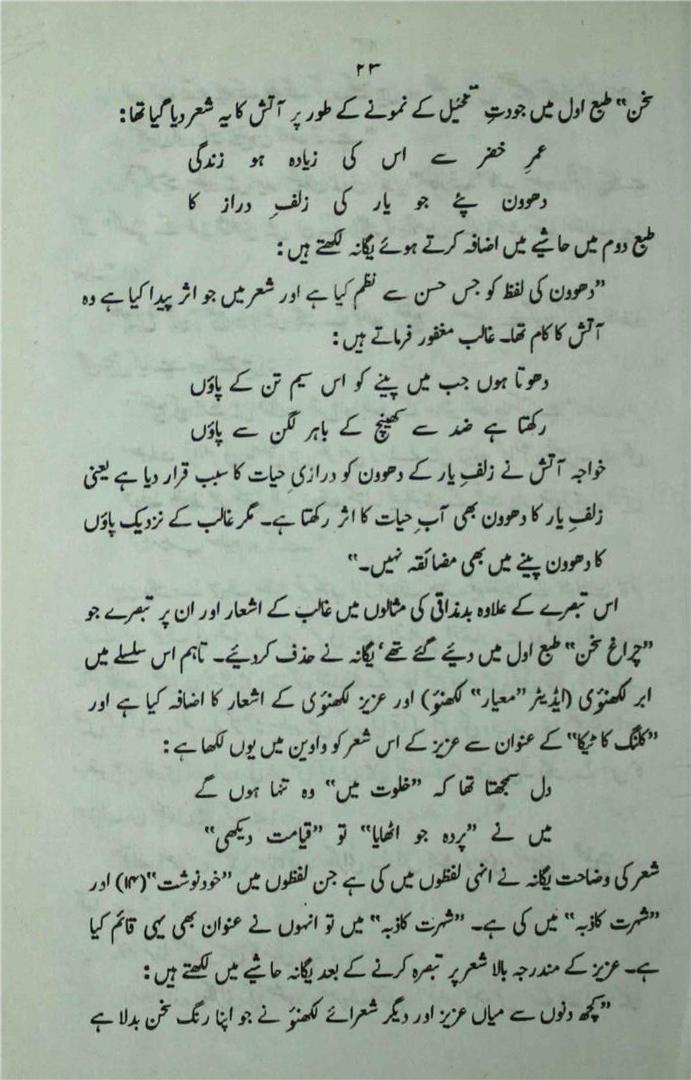 ۲۳
سخن“ طبع اول میں جودتِ تخیّل کے نمونے کے طور پر آتش کا یہ شعر دیا گیا تھا:
عمرِ خضر سے اس کی زیادہ ہو زندگی
دھوون پئے جو یار کی زلفِ دراز کا
طبع دوم میں حاشیے میں اضافہ کرتے ہوئے یگانہ لکھتے ہیں:
”دھوون کی لفظ کو جس حسن سے نظم کیا ہے اور شعر میں جو اثر پیدا کیا ہے وہ
آتش کا کام تھا۔ غالب مغفور فرماتے ہیں:
دھوتا ہوں جب میں پینے کو اس سیم تن کے پاؤں
رکھتا ہے ضد سے کھینچ کے باہر لگن سے پاؤں
خواجہ آتش نے زلفِ یار کے دھوون کو درازیِ حیات کا سبب قرار دیا ہے یعنی
زلفِ یار کا دھوون بھی آبِ حیات کا اثر رکھتا ہے۔ مگر غالب کے نزدیک پاؤں
کا دھوون پینے میں بھی مضائقہ نہیں۔“
اس تبصرے کے علاوہ بدمذاقی کی مثالوں میں غالب کے اشعار اور ان پر تبصرے جو
”چراغ سخن“ طبع اول میں دیئے گئے تھے‘ یگانہ نے حذف کر دیئے۔ تاہم اس سلسلے میں
ابر لکھنؤی (ایڈیٹر ”معیار“ لکھنؤ) اور عزیز لکھنؤی کے اشعار کا اضافہ کیا ہے اور
”کلنگ کا ٹیکا“ کے عنوان سے عزیز کے اس شعر کو واوین میں یوں لکھا ہے:
دل سمجھتا تھا کہ ”خلوت میں“ وہ تنہا ہوں گے
میں نے ”پردہ جو اٹھایا“ تو ”قیامت دیکھی“
شعر کی وضاحت یگانہ نے انہی لفظوں میں کی ہے جن لفظوں میں ”خودنوشت“(۱۴) اور
”شہرت کاذبہ“ میں کی ہے۔ ”شہرت کاذبہ“ میں تو انہوں نے عنوان بھی یہی قائم کیا
ہے۔ عزیز کے مندرجہ بالا شعر پر تبصرہ کرنے کے بعد یگانہ حاشیے میں لکھتے ہیں:
”کچھ دنوں سے میاں عزیز اور دیگر شعرائے لکھنؤ نے جو اپنا رنگ سخن بدلا ہے